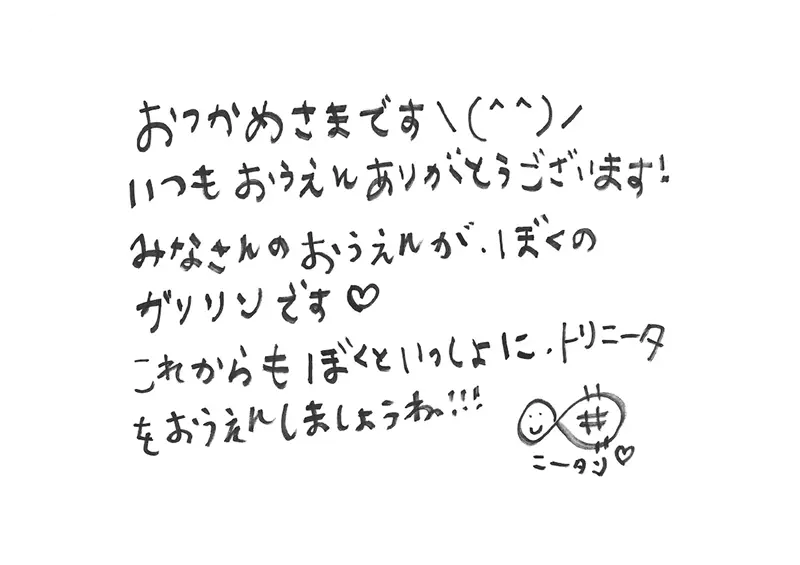 おつかめさまです＼(^^)／
いつもおうえんありがとうございます!
みなさんのおうえんが、ぼくの
ガソリンです♡
これからもぼくといっしょに、トリニータ
をおうえんしましょうね!!!
ニータン♡